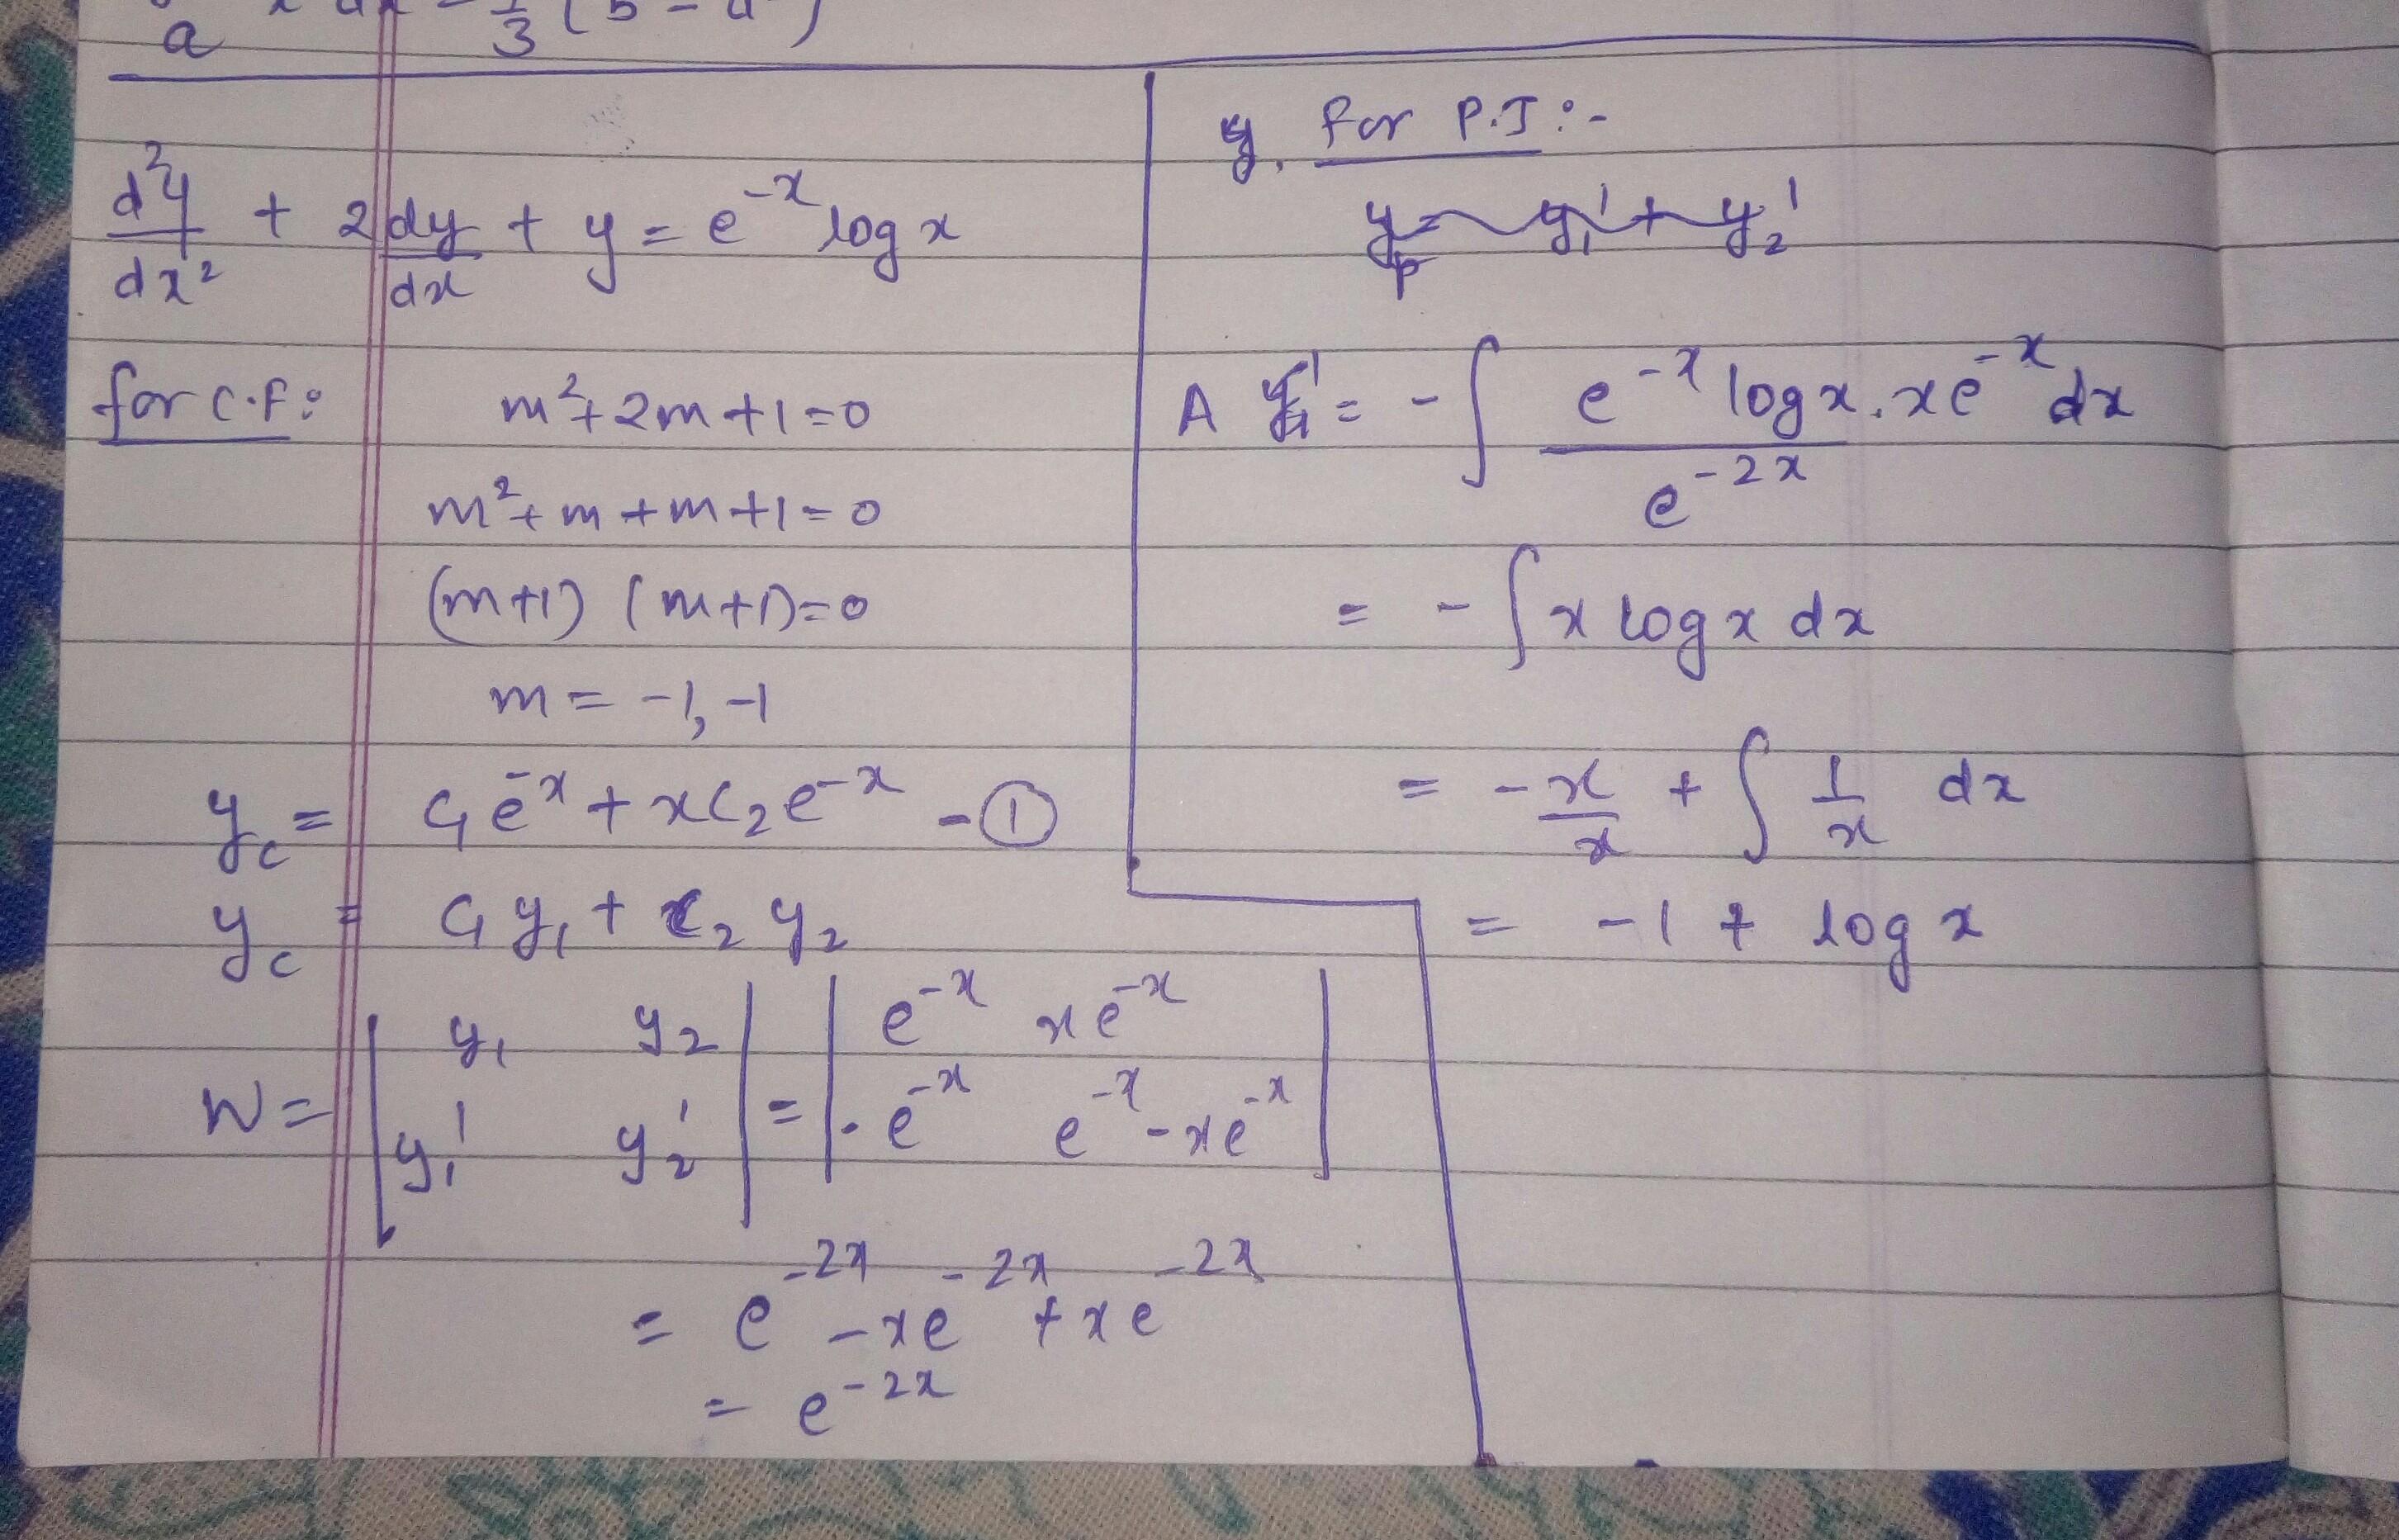 a
3
d²y/dx² + 2 dy/dx + y = e^-x log x
for C.F:
m²+2m+1=0
m²+m+m+1=0
(m+1) (m+1)=0
m = -1, -1
y_c = C₁e^-x + xC₂e^-x - ①
y_c = C₁y₁ + C₂y₂
W = | y₁ y₂ | = | e^-x xe^-x |
| y₁' y₂' | | -e^-x e^-x - xe^-x |
= e^-2x - xe^-2x + xe^-2x
= e^-2x
for P.I :-
y_p = y₁' + y₂'
A = - ∫ e^-x log x . xe^-x dx / e^-2x
= - ∫ x log x dx
= - x/x + ∫ 1/x dx
= -1 + log x